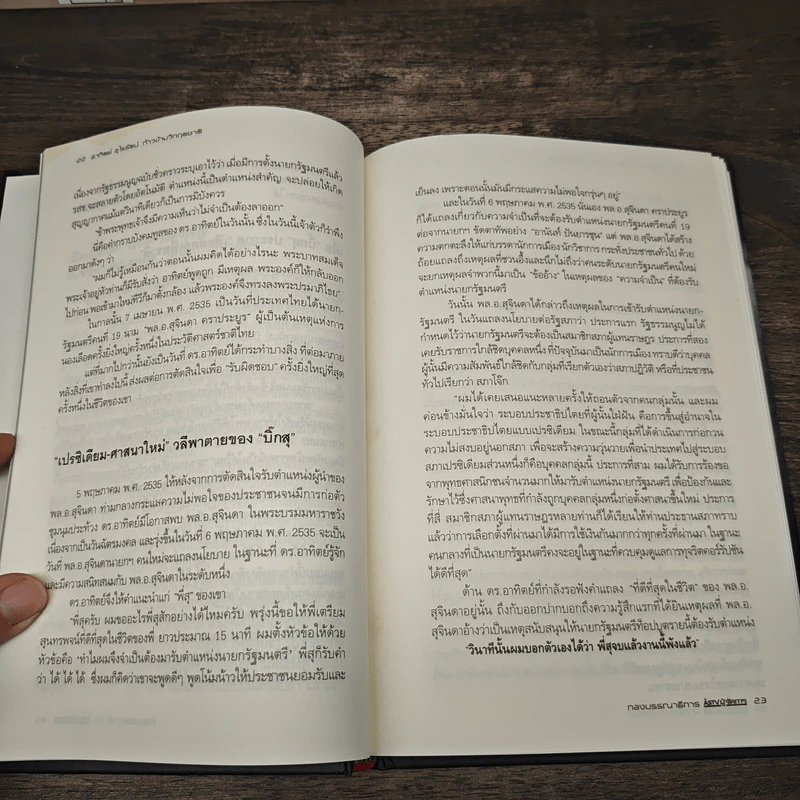 22 อาทิตย์ อุไรรัตน์ ก้าวข้ามวิกฤตชาติ
เนื่องจากรัฐธรรมนูญฉบับชั่วคราวระบุเอาไว้ว่า เมื่อมีการตั้งนายกรัฐมนตรีแล้ว
รสช.จะสลายตัวโดยอัตโนมัติ ตำแหน่งนี้เป็นตำแหน่งสำคัญ จะปล่อยให้เกิด
สุญญากาศแม้แต่วินาทีเดียวก็ไม่เป็นการบังควร
"ข้าพระพุทธเจ้าจึงมีความเห็นว่าไม่จำเป็นต้องลาออก"
นี่คือคำกราบบังคมทูลของ ดร.อาทิตย์ในวันนั้น ซึ่งในวันนี้เจ้าตัวก็รำพึง
ออกมาดังๆ ว่า
"ผมก็ไม่รู้เหมือนกันว่าตอนนั้นผมคิดได้อย่างไรนะ พระบาทสมเด็จ
พระเจ้าอยู่หัวท่านก็มีรับสั่งว่า อาทิตย์พูดถูก มีเหตุผล พระองค์ก็ให้กลับออก
ไปก่อน พอเข้ามาใหม่ทีวีก็มาตั้งกล้อง แล้วพระองค์จึงทรงลงพระปรมาภิไธย"
ในกาลนั้น 7 เมษายน พ.ศ. 2535 เป็นวันที่ประเทศไทยได้นายก-
รัฐมนตรีคนที่ 19 นาม "พล.อ.สุจินดา คราประยูร" ผู้เป็นต้นเหตุแห่งการ
นองเลือดครั้งยิ่งใหญ่ครั้งหนึ่งในประวัติศาสตร์ชาติไทย
แต่ที่มากไปกว่านั้นยังเป็นวันที่ ดร.อาทิตย์ได้กระทำบางสิ่ง ที่ต่อมาภาย
หลังสิ่งที่เขาทำลงไปนี้ ส่งผลต่อการตัดสินใจเพื่อ "รับผิดชอบ" ครั้งยิ่งใหญ่ที่สุด
ครั้งหนึ่งในชีวิตของเขา
"เปรซิเดียม-ศาสนาใหม่" วลีพาตายของ "บิ๊กสุ"
5 พฤษภาคม พ.ศ. 2535 ให้หลังจากการตัดสินใจรับตำแหน่งผู้นำของ
พล.อ.สุจินดา ท่ามกลางกระแสความไม่พอใจของประชาชนจนมีการก่อตัว
ชุมนุมประท้วง ดร.อาทิตย์มีโอกาสพบ พล.อ.สุจินดา ในพระบรมมหาราชวัง
เนื่องจากเป็นวันฉัตรมงคล และรุ่งขึ้นในวันที่ 6 พฤษภาคม พ.ศ. 2535 จะเป็น
วันที่ พล.อ.สุจินดานายกฯ คนใหม่จะแถลงนโยบาย ในฐานะที่ ดร.อาทิตย์รู้จัก
และมีความสนิทสนมกับ พล.อ.สุจินดาในระดับหนึ่ง
ดร.อาทิตย์จึงให้คำแนะนำแก่ "พี่สุ" ของเขา
"พี่สุครับ ผมขออะไรพี่สุสักอย่างได้ไหมครับ พรุ่งนี้ขอให้พี่เตรียม
สุนทรพจน์ที่ดีที่สุดในชีวิตของพี่ ยาวประมาณ 15 นาที ผมตั้งหัวข้อให้ด้วย
หัวข้อคือ 'ทำไมผมจึงจำเป็นต้องมารับตำแหน่งนายกรัฐมนตรี' พี่สุก็รับคำ
ว่า ได้ ได้ ได้ ซึ่งผมก็คิดว่าเขาจะพูดดีๆ พูดโน้มน้าวให้ประชาชนยอมรับและ
เย็นลง เพราะตอนนั้นมันมีกระแสความไม่พอใจกรุ่นๆ อยู่"
และในวันที่ 6 พฤษภาคม พ.ศ. 2535 นั่นเอง พล.อ.สุจินดา คราประยูร
ก็ได้แถลงเกี่ยวกับความจำเป็นที่จะต้องรับตำแหน่งนายกรัฐมนตรีคนที่ 19
ต่อจากนายกฯ ขัดตาทัพอย่าง "อานันท์ ปันยารชุน" แต่ พล.อ.สุจินดาได้สร้าง
ความตกตะลึงให้แก่บรรดานักการเมือง นักวิชาการ กระทั่งประชาชนทั่วไป ด้วย
ถ้อยแถลงถึงเหตุผลที่ชวนอึ้งและนึกไม่ถึงว่าคนระดับนายกรัฐมนตรีคนใหม่
จะยกเหตุผลจำพวกนี้มาเป็น "ข้ออ้าง" ในเหตุผลของ "ความจำเป็น" ที่ต้องรับ
ตำแหน่งนายกรัฐมนตรี
วันนั้น พล.อ.สุจินดาได้กล่าวถึงเหตุผลในการเข้ารับตำแหน่งนายก-
รัฐมนตรี ในวันแถลงนโยบายต่อรัฐสภาว่า ประการแรก รัฐธรรมนูญไม่ได้
กำหนดไว้ว่านายกรัฐมนตรีจะต้องเป็นสมาชิกสภาผู้แทนราษฎร ประการที่สอง
เคยรับราชการใกล้ชิดบุคคลหนึ่ง ที่ปัจจุบันมาเป็นนักการเมือง ทราบดีว่าบุคคล
ผู้นั้นมีความสัมพันธ์ใกล้ชิดกับกลุ่มที่เรียกตัวเองว่าสภาปฏิวัติ หรือที่ประชาชน
ทั่วไปเรียกว่า สภาโจ๊ก
"ผมได้เคยเสนอแนะหลายครั้งให้ถอนตัวจากคนกลุ่มนั้น และผม
ค่อนข้างมั่นใจว่า ระบอบประชาธิปไตยที่ผู้นั้นใฝ่ฝัน คือการขึ้นสู่อำนาจใน
ระบอบประชาธิปไตยแบบเปรซิเดียม ในขณะนี้กลุ่มที่ได้ดำเนินการก่อกวน
ความไม่สงบอยู่นอกสภา เพื่อจะสร้างความวุ่นวายเพื่อนำประเทศไปสู่ระบอบ
สภาเปรซิเดียมส่วนหนึ่งก็คือบุคคลกลุ่มนี้ ประการที่สาม ผมได้รับการร้องขอ
จากพุทธศาสนิกชนจำนวนมากให้มารับตำแหน่งนายกรัฐมนตรี เพื่อป้องกันและ
รักษาไว้ซึ่งศาสนาพุทธที่กำลังถูกบุคคลกลุ่มหนึ่งก่อตั้งศาสนาขึ้นใหม่ ประการ
ที่สี่ สมาชิกสภาผู้แทนราษฎรหลายท่านก็ได้เรียนให้ท่านประธานสภาทราบ
แล้วว่าการเลือกตั้งที่ผ่านมาได้มีการใช้เงินกันมากกว่าทุกครั้งที่ผ่านมา ในฐานะ
คนกลางที่เป็นนายกรัฐมนตรีคงจะอยู่ในฐานะที่จะควบคุมดูแลการทุจริตคอร์รัปชัน
ได้ดีที่สุด"
ด้าน ดร.อาทิตย์ที่กำลังรอฟังคำแถลง "ที่ดีที่สุดในชีวิต" ของ พล.อ.
สุจินดาอยู่นั้น ถึงกับออกปากบอกถึงความรู้สึกแรกที่ได้ยินเหตุผลที่ พล.อ.
สุจินดาอ้างว่าเป็นเหตุสนับสนุนให้นายกรัฐมนตรีท็อปบูตรายนี้ต้องรับตำแหน่ง
"วินาทีนั้นผมบอกตัวเองได้ว่า พี่สุจบแล้วงานนี้พังแล้ว"
กองบรรณาธิการ ASTVผู้จัดการ 23